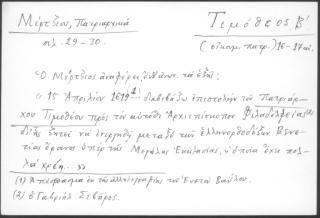 Μέρτζιος, Πατριαρχικά
σελ. 29-30.
Τιμόθεος Β'
(οἰκουμ. πατρ.) 16-17 αἰ.
Ὁ Μέρτζιος ἀναφέρει, ὅτι τὰ ἑξῆς:
« 15 Ἀπριλίου 1619 (1) διαβιβάζω ἐπιστολὴν τοῦ Πατριάρ-
χου Τιμοθέου πρὸς τὸν αὐτόθι Ἀρχιεπίσκοπον Φιλαδελφείας (2)
διότι μεταξὺ τῶν ἑλληνορθοδόξων Βενε-
τίας ἔρανος ὑπὲρ τῆς Μεγάλης Ἐκκλησίας, ἡ ὁποία ἔχει πολ-
λὰ χρέη... »
(1) Ἀπόσπασμα ἐκ τῆς ἀλληλογραφίας τοῦ Βαΐλου.
(2) ὁ Γαβριὴλ Σεβῆρος.